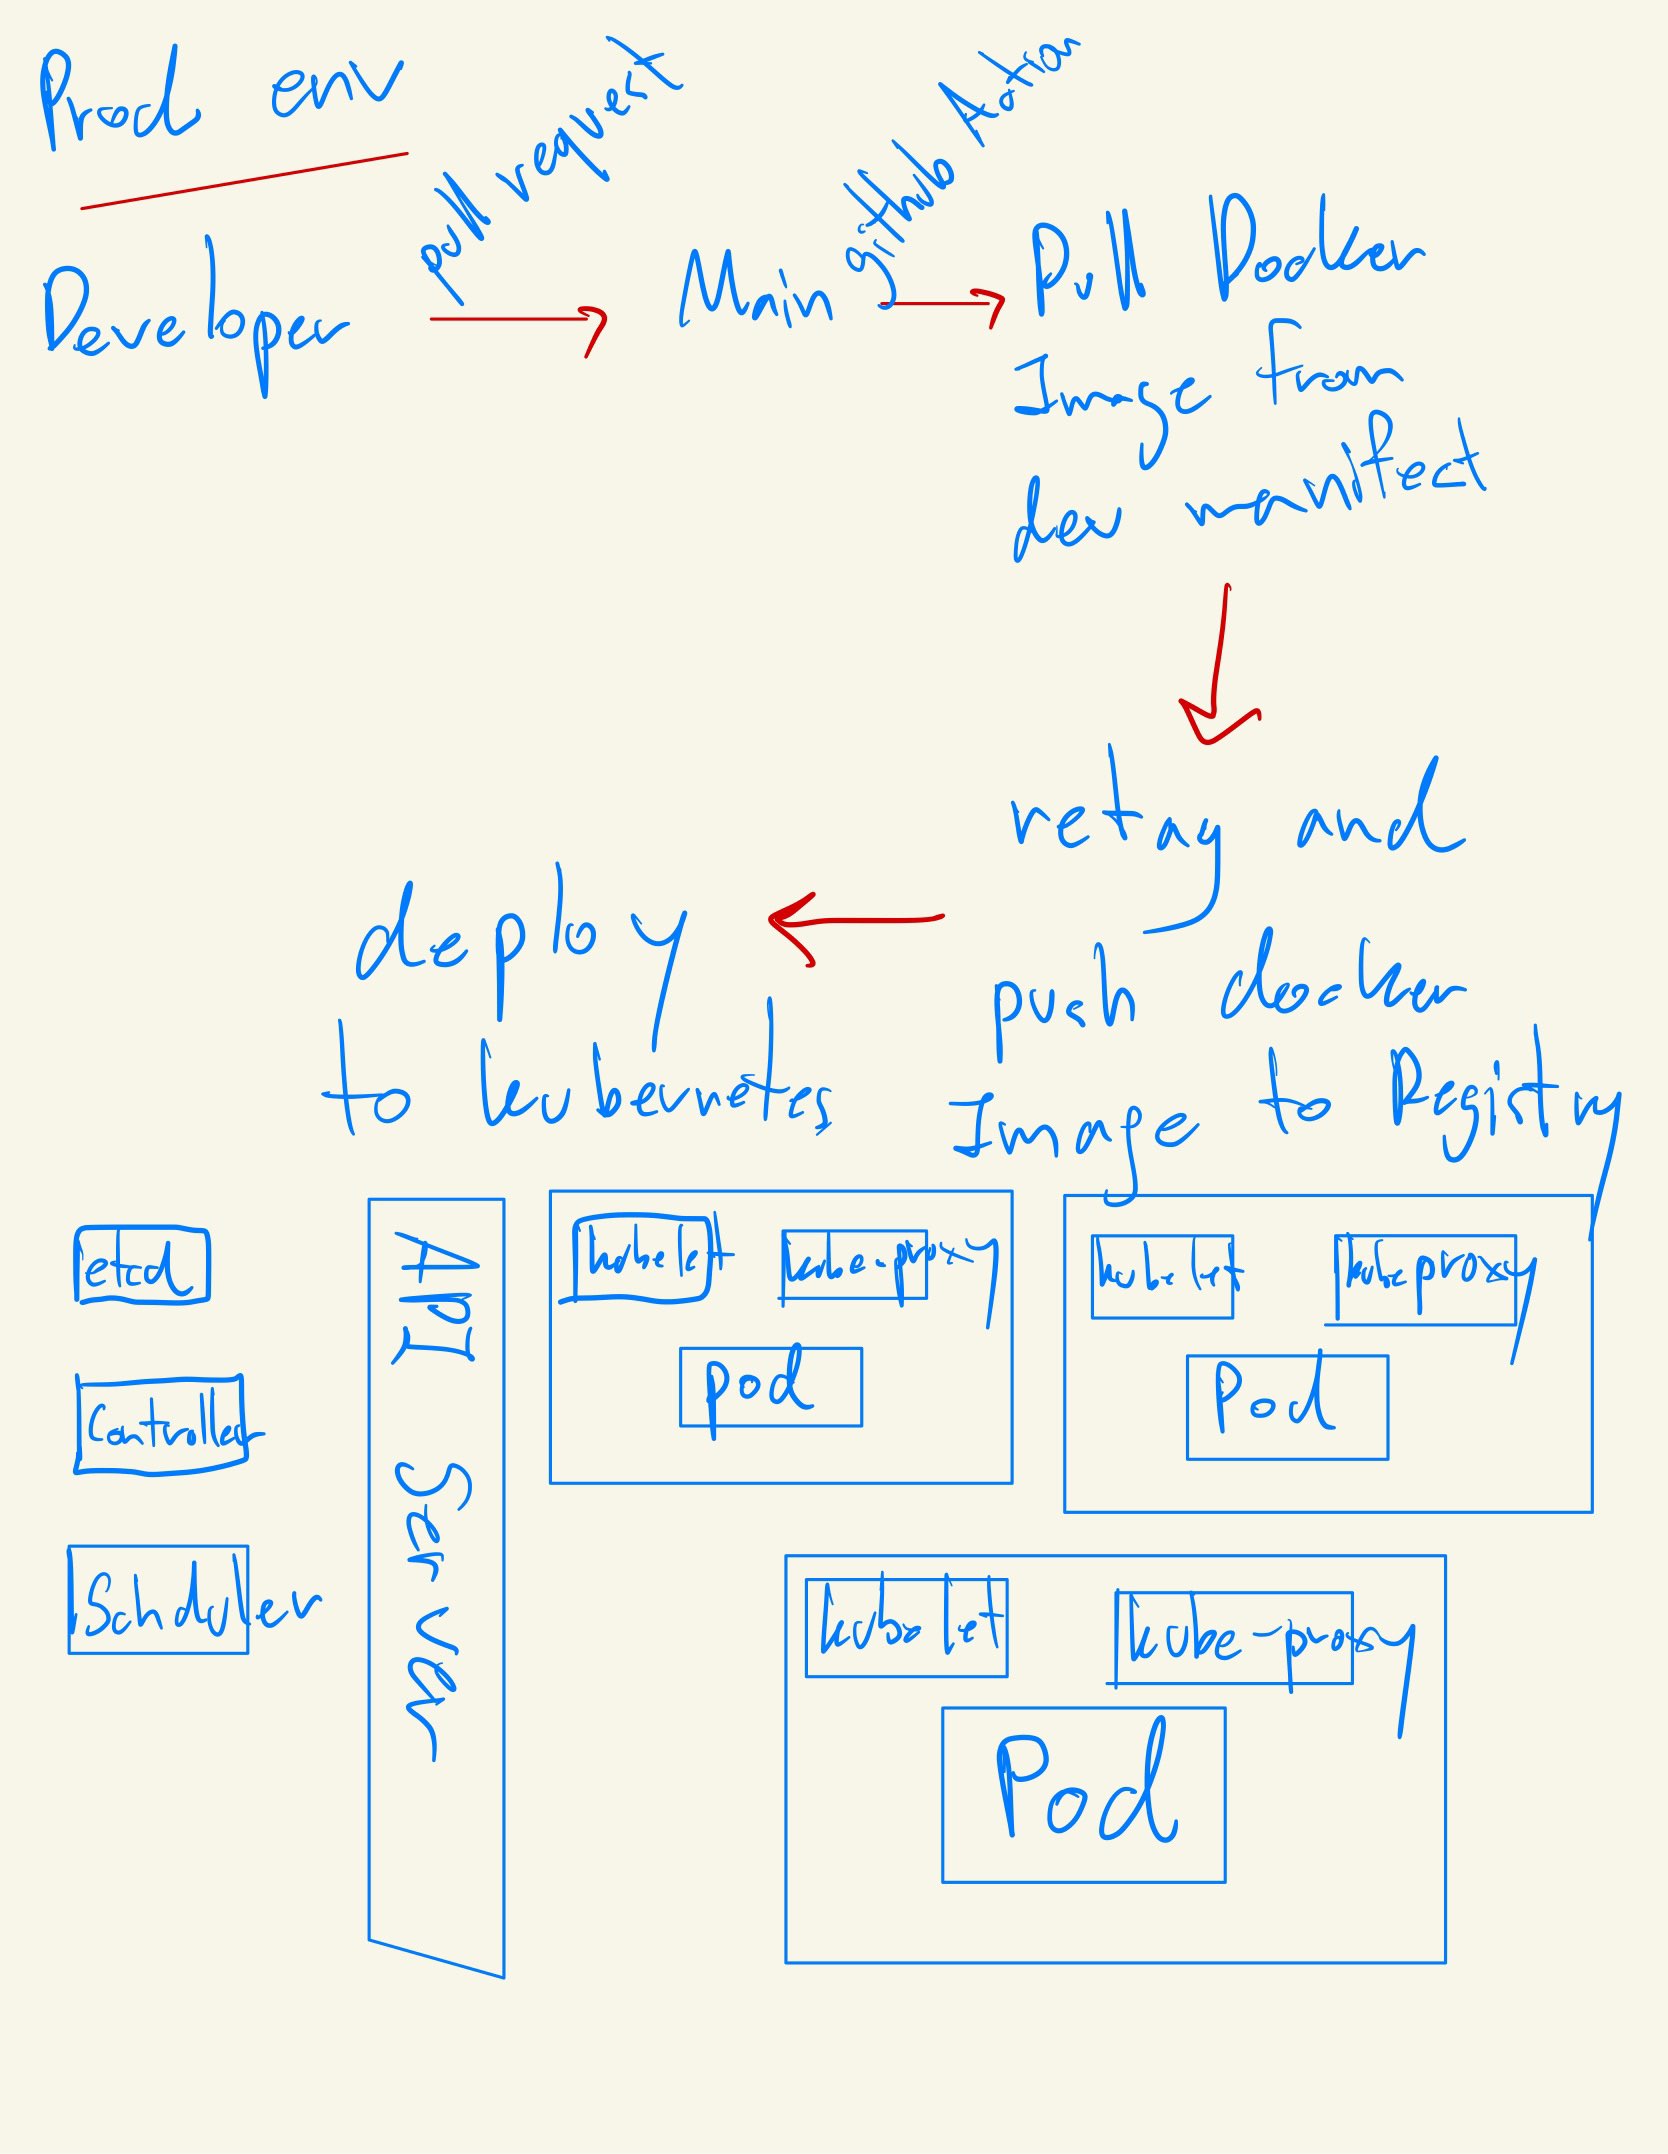 Prod env
pull request
github Action
Developer
Main
Pull Docker
Image from
dev manifect
retag and
push docker
Image to Registry
deploy
to kubernetes
etcd
Controller
Schduler
API Server
kubelet
kube-proxy
pod
kubelet
kube proxy
Pod
kubelet
kube-proxy
Pod